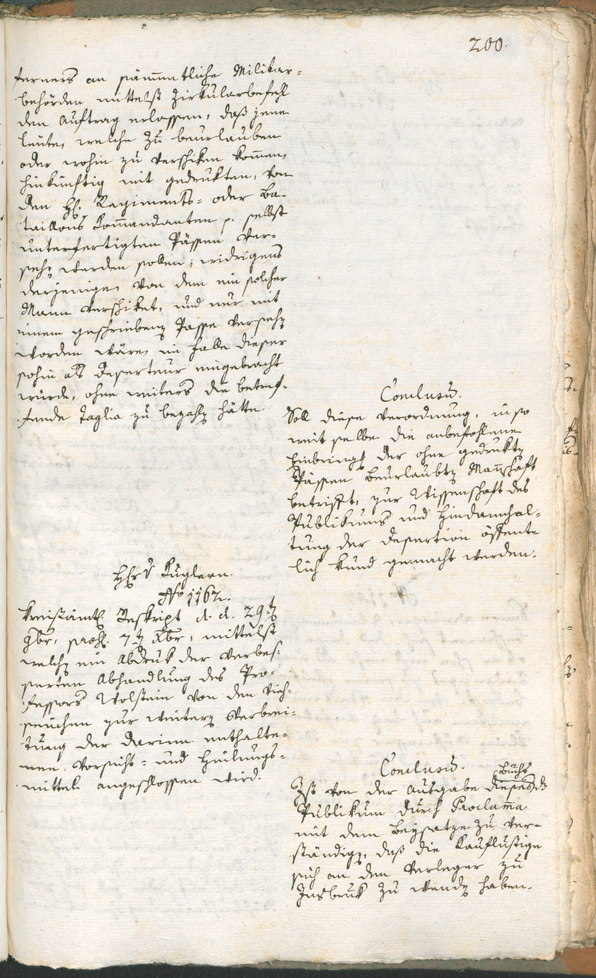 200.
ferners an sämmtliche Militar-
behörden mittelst Zirkularbefehl
den Auftrag erlassen, daß jene
Leute, welche zu beurlauben
oder wohin zu verschiken kommen,
hinkünftig mit gedrukten, von
den HH. Regiments- oder Ba-
taillons Kommandanten p. selbst
unterfertigten Pässen ver-
sehen werden sollen, widrigens
derjenige, von dem ein solcher
Mann verschiket, und nur mit
einem geschriebenen Passe versehen
worden wäre, im Falle dieser
sohin als Deserteur eingebracht
würde, ohne weiters die betref-
fende Taglia zu bezahlen hätte.
Conclusum.
Soll diese Verordnung, in so
weit selbe die anbefohlene
Einbringung der ohne gedrukten
Pässen beurlaubten Mannschaft
betrifft, zur Wissenschaft des
Publikums und Hindanhal-
tung der Desertion öffent-
lich kund gemacht werden.
Hr. v. Kuglern.
No. 1162.
Kreisämtl. Reskript d. d. 29ten
9ber, praes. 7ten Xber, mittelst
welchem ein Abdruk der verbes-
serten Abhandlung des Pro-
fessors Wolstein von den Vieh-
seuchen zur weitern Verbrei-
tung der darinn enthalte-
nen Vorsicht- und Heilungs-
mitteln angeschlossen wird.
Conclusum.
Ist von der Ausgabe dieses Buchs das
Publikum durch Proclama
mit dem Beysatze zu ver-
ständigen, daß die Kauflustige
sich an den Verleger zu
Insbruk zu wenden haben.